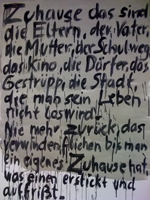 Zuhause das sind
die Eltern, der Vater,
die Mutter, der Schulweg
das Kino, die Dörfer, das
Gestrüpp, die Stadt,
die man sein Leben
nicht loswird.
Nie mehr zurück, das
verwinden, fliehen bis man
ein eigenes Zuhause hat,
was einen erstickt und
auffrißt.